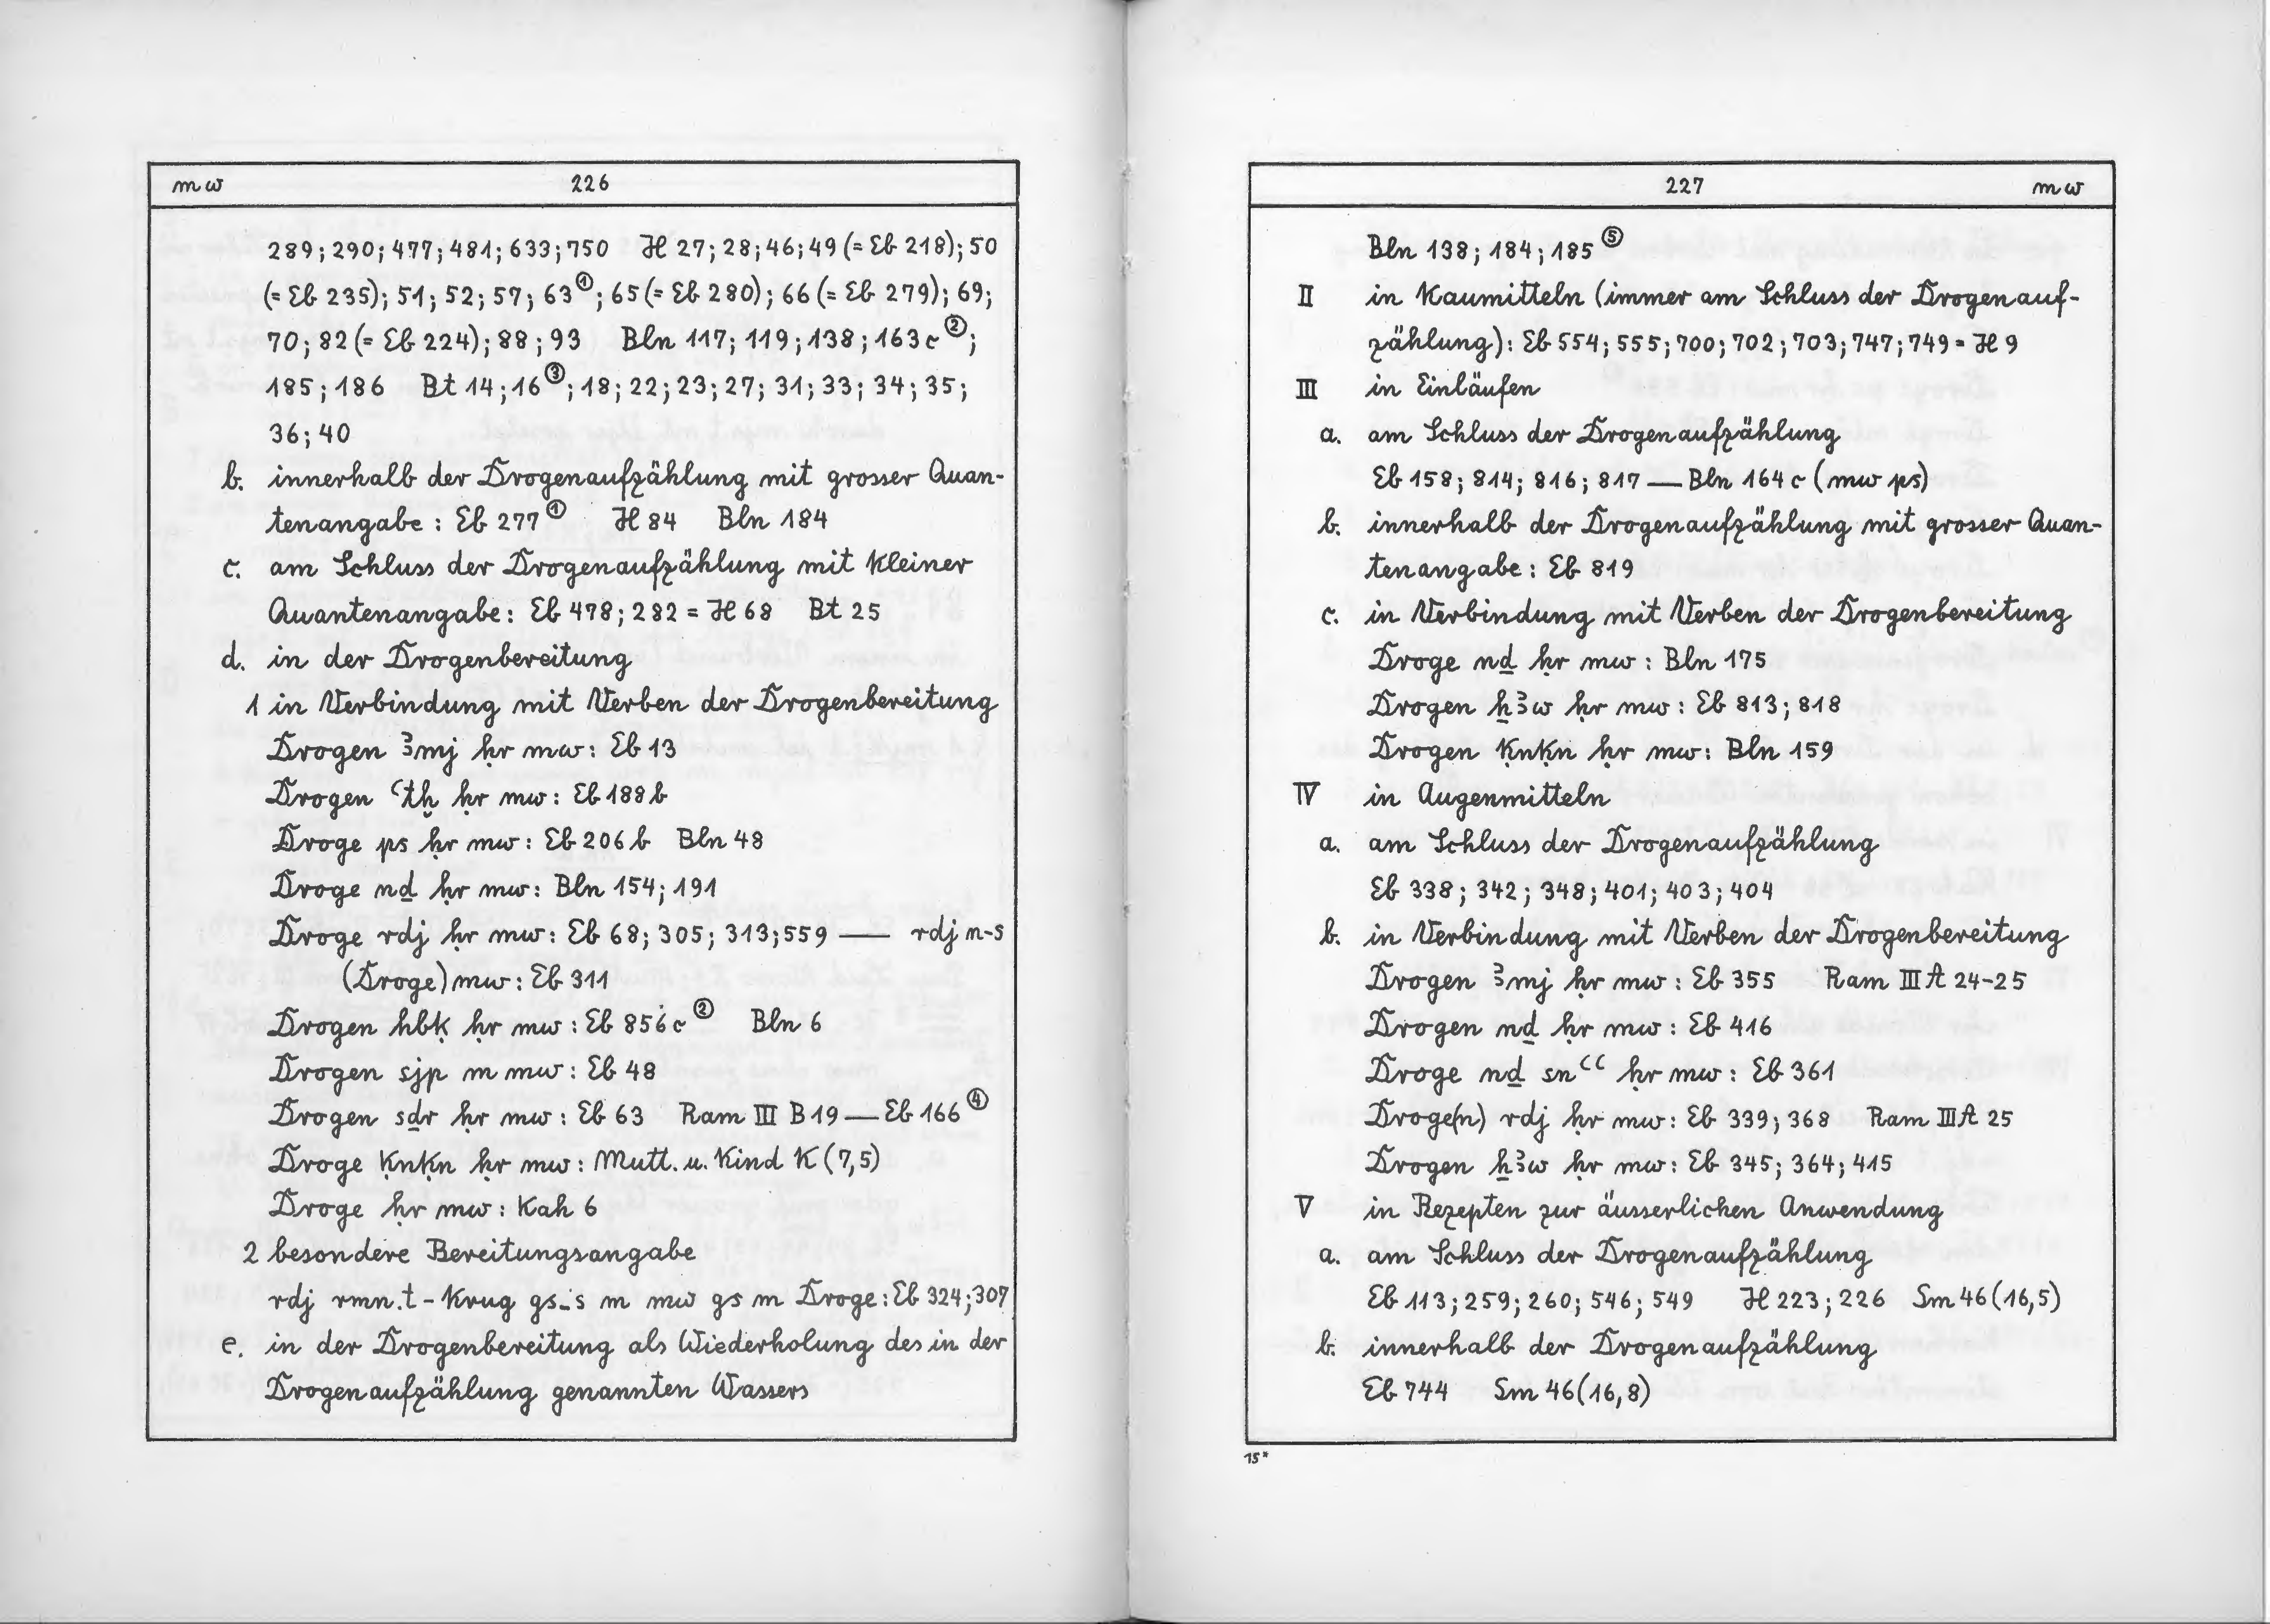 mw 226
289; 290; 477; 481; 633; 750 H 27; 28; 46; 49 (= Eb 218); 50
(= Eb 235); 51; 52; 57; 63①; 65 (= Eb 280); 66 (= Eb 279); 69;
70; 82 (= Eb 224); 88; 93 Bln 117; 119; 138; 163 c②;
185; 186 Bt 14; 16③; 18; 22; 23; 27; 31; 33; 34; 35;
36; 40
b. innerhalb der Drogenaufzählung mit grosser Quan-
tenangabe: Eb 277① H 84 Bln 184
c. am Schluss der Drogenaufzählung mit kleiner
Quantenangabe: Eb 478; 282 = H 68 Bt 25
d. in der Drogenbereitung
1 in Verbindung mit Verben der Drogenbereitung
Drogen ꜣmj ḥr mw: Eb 13
Drogen ꜥtḫ ḥr mw: Eb 188 b
Droge ps ḥr mw: Eb 206 b Bln 48
Droge nḏ ḥr mw: Bln 154; 191
Droge rdj ḥr mw: Eb 68; 305; 313; 559 — rdj n-s
(Droge) mw: Eb 311
Drogen hbḳ ḥr mw: Eb 856 c② Bln 6
Drogen sjp m mw: Eb 48
Drogen sḏr ḥr mw: Eb 63 Ram III B 19 — Eb 166④
Droge ḳnḳn ḥr mw: Mutt. u. Kind K (7,5)
Droge ḥr mw: Kah 6
2 besondere Bereitungsangabe
rdj rmn.t - Krug gs-s m mw gs m Droge: Eb 324; 307
e. in der Drogenbereitung als Wiederholung des in der
Drogenaufzählung genannten Wassers
227 mw
Bln 138; 184; 185⑤
II in Kaumitteln (immer am Schluss der Drogenauf-
zählung): Eb 554; 555; 700; 702; 703; 747; 749 = H 9
III in Einläufen
a. am Schluss der Drogenaufzählung
Eb 158; 814; 816; 817 — Bln 164 c (mw ps)
b. innerhalb der Drogenaufzählung mit grosser Quan-
tenangabe: Eb 819
c. in Verbindung mit Verben der Drogenbereitung
Droge nḏ ḥr mw: Bln 175
Drogen ẖꜣw ḥr mw: Eb 813; 818
Drogen ḳnḳn ḥr mw: Bln 159
IV in Augenmitteln
a. am Schluss der Drogenaufzählung
Eb 338; 342; 348; 401; 403; 404
b. in Verbindung mit Verben der Drogenbereitung
Drogen ꜣmj ḥr mw: Eb 355 Ram III A 24-25
Drogen nḏ ḥr mw: Eb 416
Droge nḏ snꜥꜥ ḥr mw: Eb 361
Droge(n) rdj ḥr mw: Eb 339; 368 Ram III A 25
Drogen ẖꜣw ḥr mw: Eb 345; 364; 415
V in Rezepten zur äusserlichen Anwendung
a. am Schluss der Drogenaufzählung
Eb 113; 259; 260; 546; 549 H 223; 226 Sm 46 (16,5)
b. innerhalb der Drogenaufzählung
Eb 744 Sm 46 (16,8)
15*